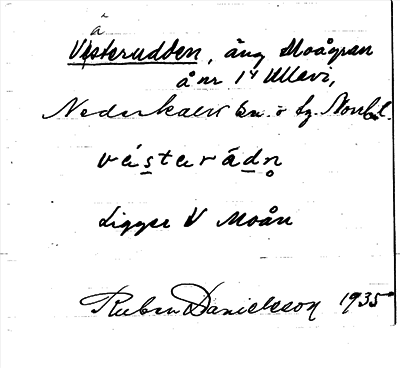 ä
Vesterudden, äng Moågran
å nr 1⁴ Ullavi,
Nederkalix sn. o. tg. Norrb. l.
vástarádn̥
Ligger V Moån
Ruben Danielsson 1935